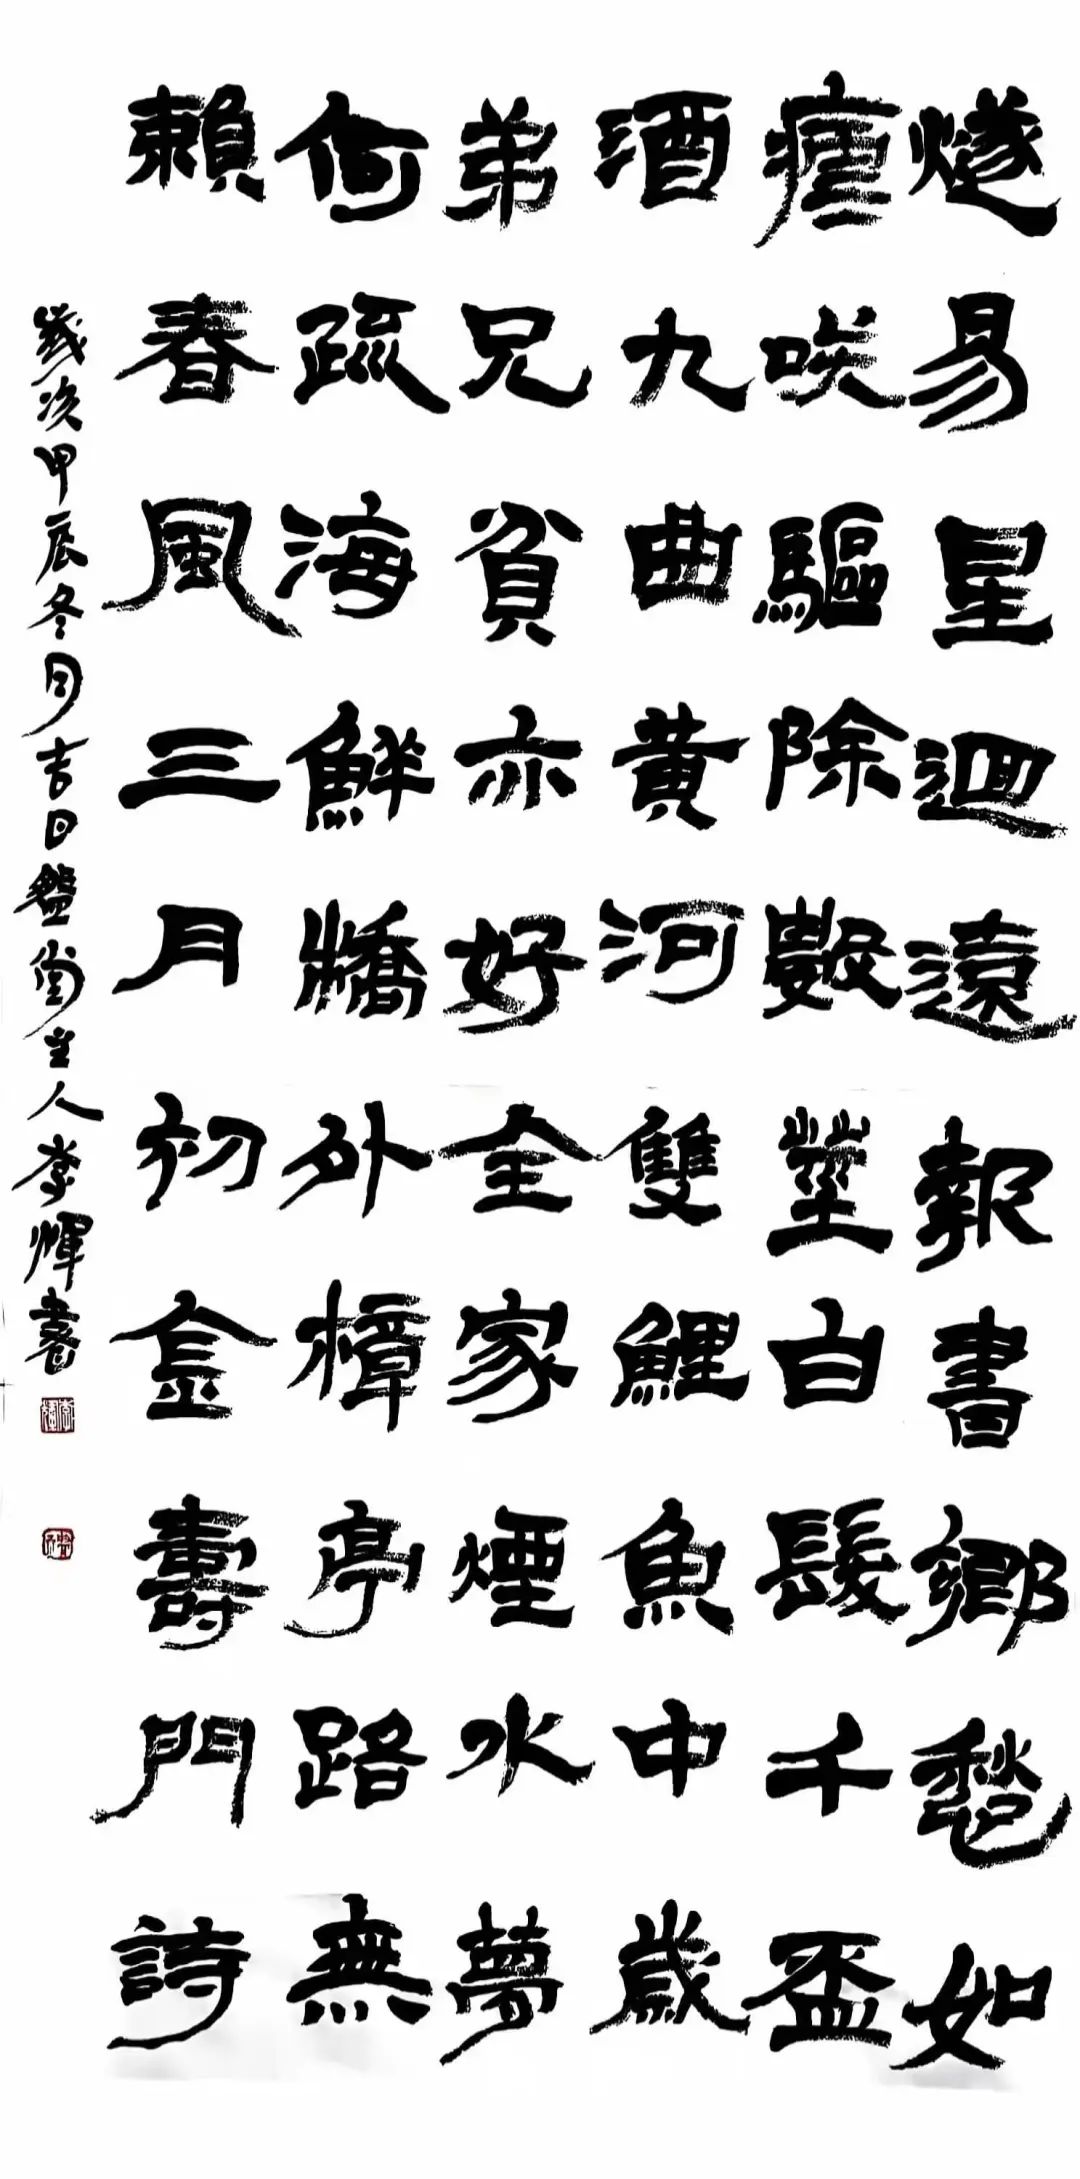 燧易星迴遠報書鄉愁如
瘧咲驅除數莖白髮千盃
酒九曲黃河雙鯉魚中歲
弟兄貧亦好全家煙水夢
何疏海鮮橋外樟亭路無
賴春風三月初金壽門詩
歲次甲辰冬月吉日堂主人李輝書